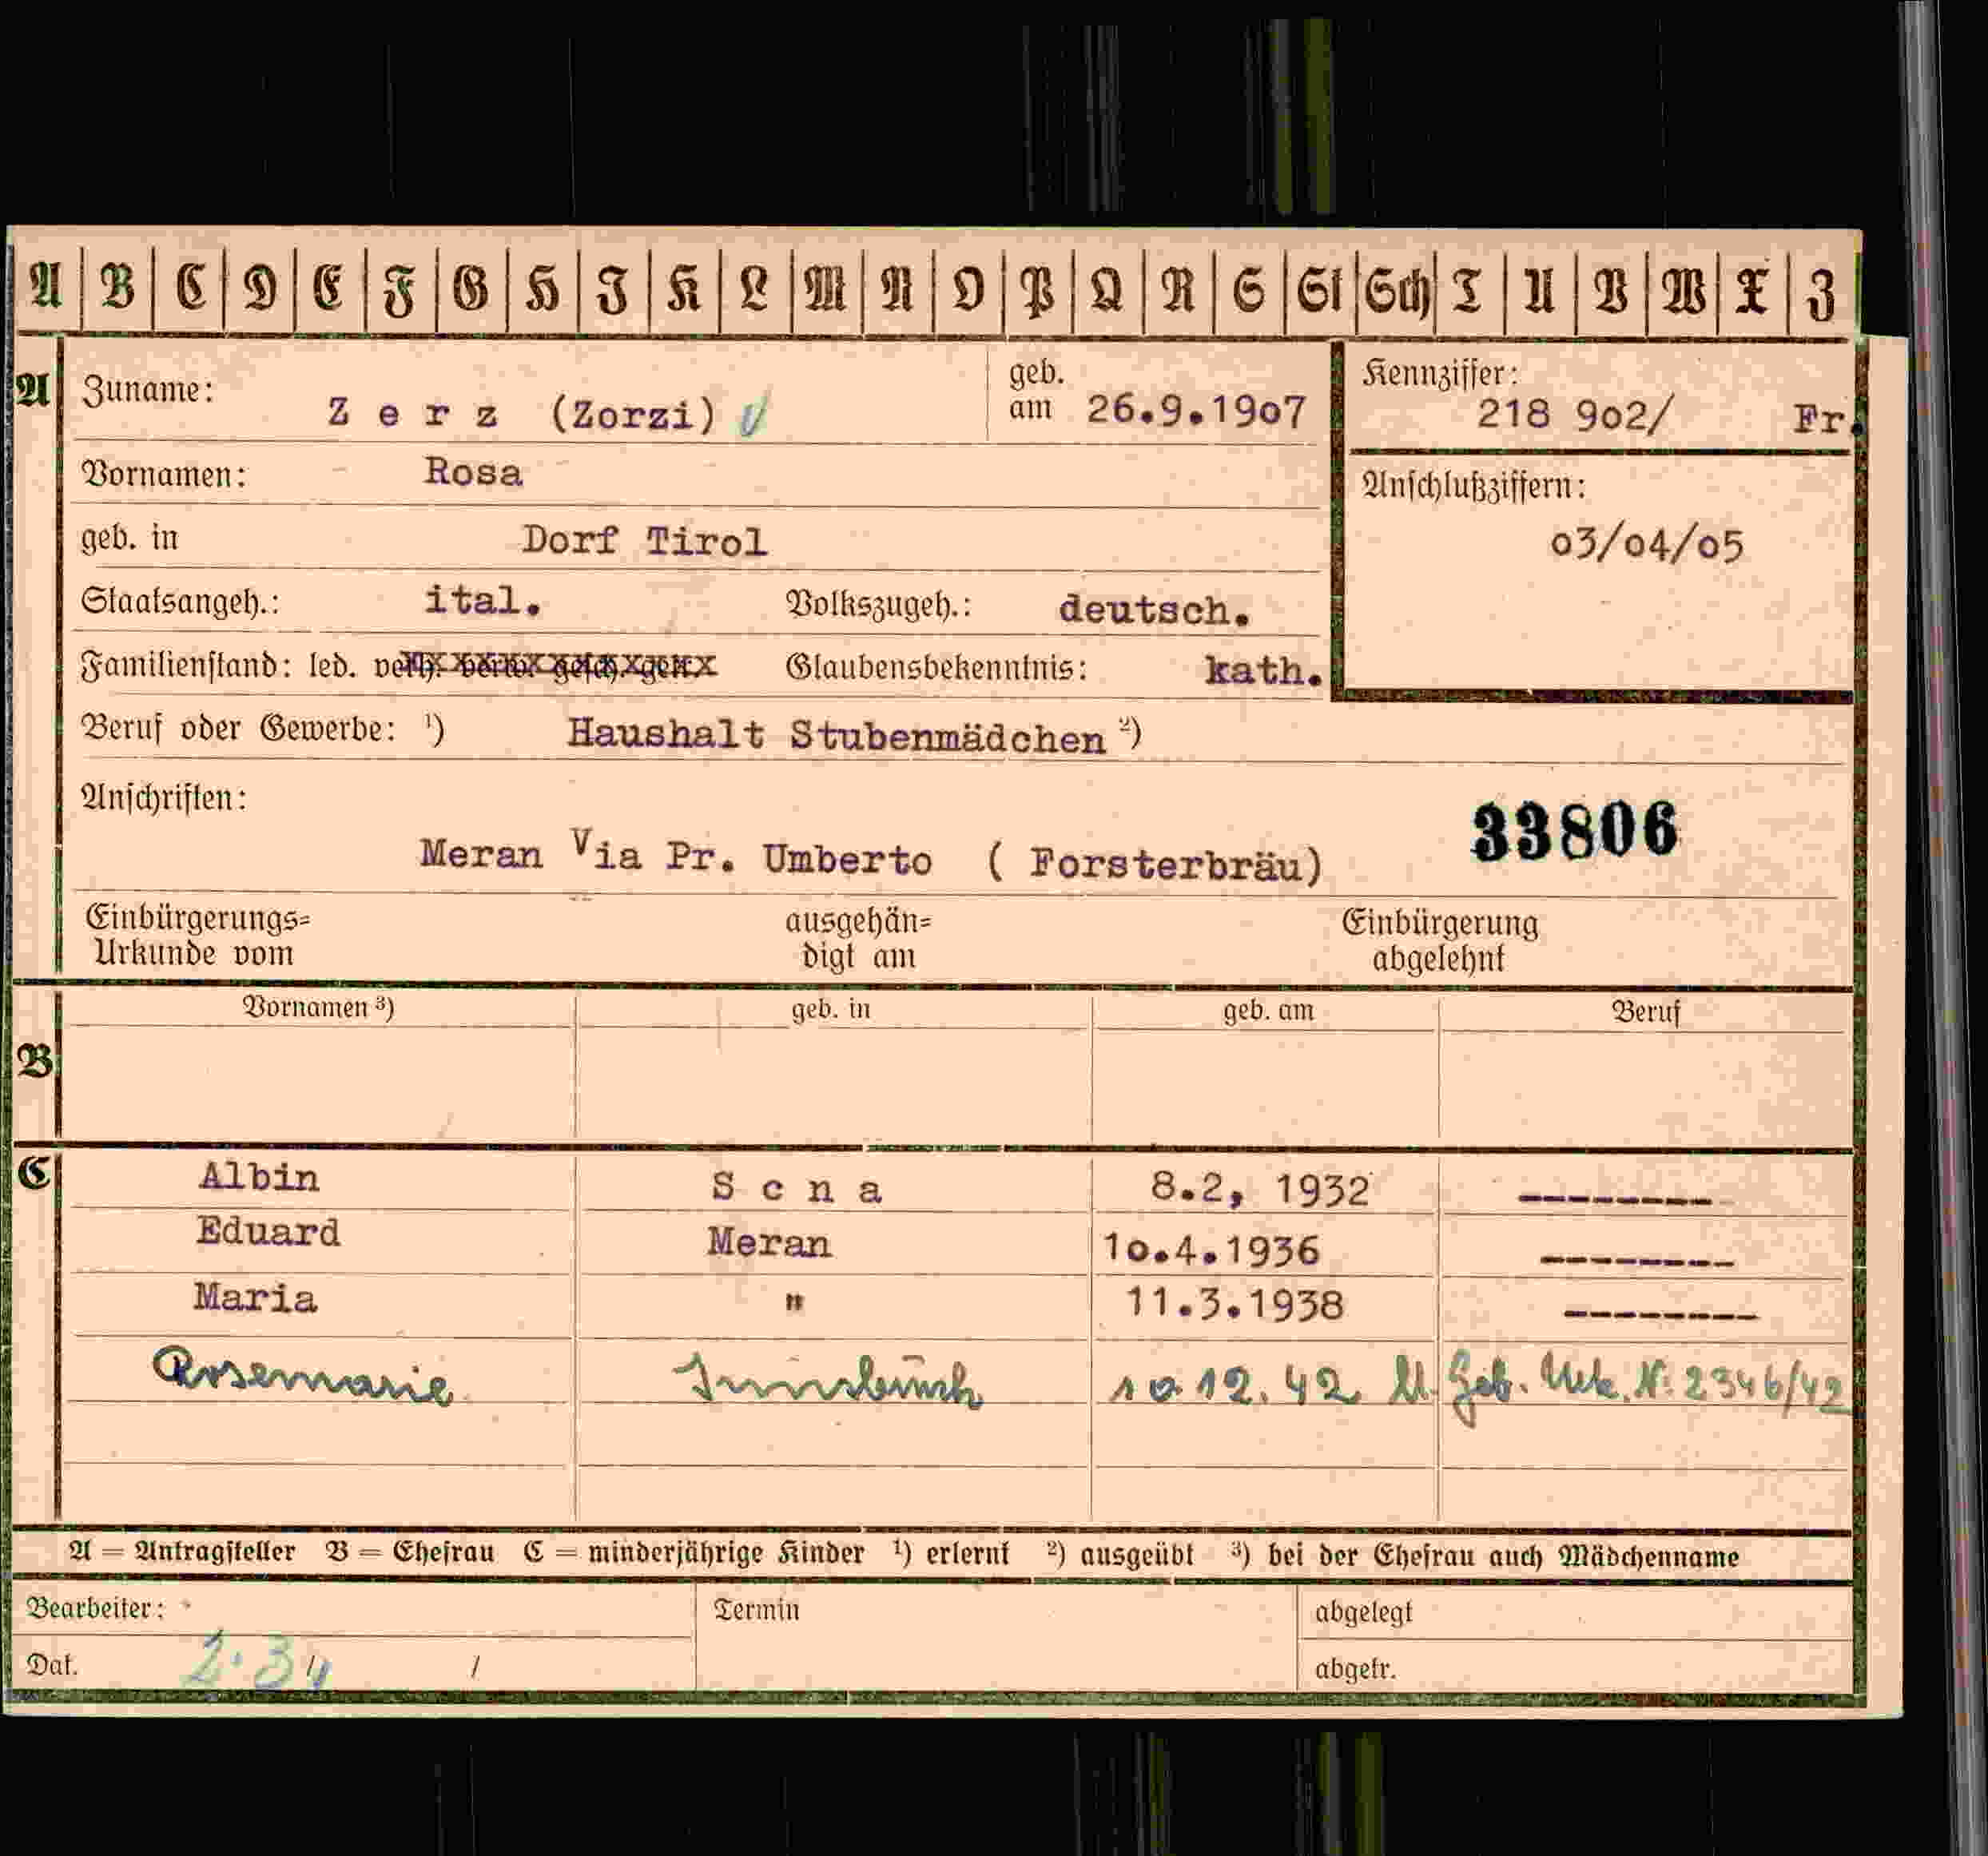 A B C D E F G H J K L M N O P Q R S St Sch T U V W X Z
A Zuname: Z e r z (Zorzi) geb. am 26.9.19o7 Kennziffer: 218 9o2/ Fr.
Vornamen: Rosa Anschlußziffern:
geb. in Dorf Tirol o3/o4/o5
Staatsangeh.: ital. Volkszugeh.: deutsch.
Familienstand: led. verh. verw. gesch. getr. Glaubensbekenntnis: kath.
Beruf oder Gewerbe: ¹) Haushalt Stubenmädchen ²)
Anschriften: 33806
Meran Via Pr. Umberto ( Forsterbräu)
Einbürgerungs= ausgehän= Einbürgerung
Urkunde vom digt am abgelehnt
Vornamen ³) geb. in geb. am Beruf
B
C Albin S c n a 8.2, 1932 --------
Eduard Meran 1o.4.1936 --------
Maria " 11.3.1938 --------
Rosemarie Innsbruck 10.12.42 Geb. Urk. N: 2346/42
A = Antragsteller B = Ehefrau C = minderjährige Kinder ¹) erlernt ²) ausgeübt ³) bei der Ehefrau auch Mädchenname
Bearbeiter: Termin abgelegt
Dat. 2.3 / / abgetr.